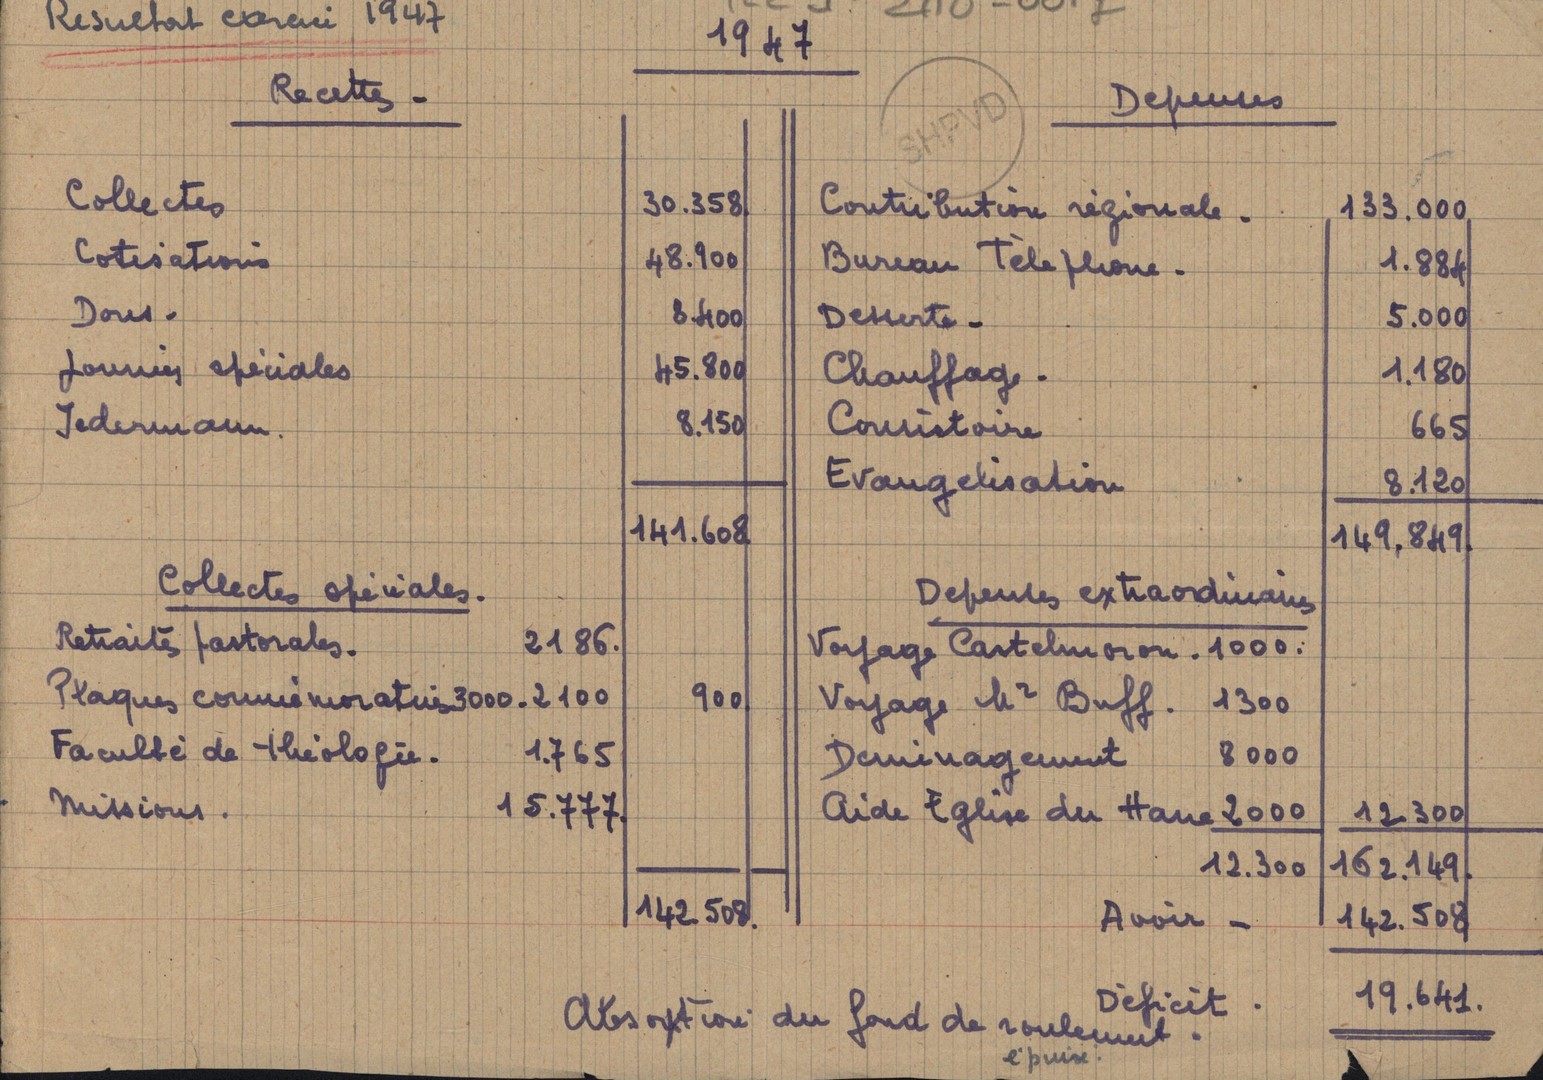 Resultat exercice 1947
1947
Recettes -
Collectes 30.358
Cotisations 48.900
Dons. 8.400
Journées spéciales 45.800
Jedermann. 8.150
141.608
Collectes spéciales.
Retraités pastorales. 2186.
Plaques commémoratives 3000.2100 900
Faculté de théologie. 1.765
Missions. 15.777.
142.508.
SHPVD
Depenses
Contribution régionale. 133.000
Bureau Téléphone. 1.884
Desserte - 5.000
Chauffage. 1.180
Consistoire 665
Evangelisation 8.120
149.849.
Depenses extraordinaires
Voyage Castelmoron. 1000.
Voyage Mr Buff. 1300
Deminagement 8000
Aide Eglise du Havre 2000 12.300
12.300 162.149.
Avoir - 142.508
Déficit. 19.641.
Absorption du fond de roulement.
épuisé.